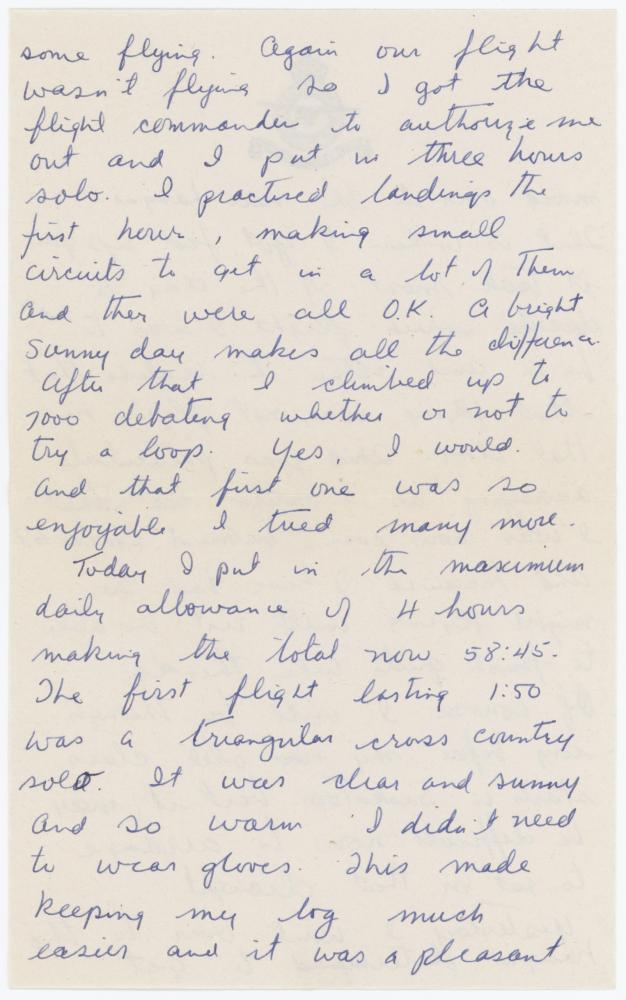 some flying. Again our flight
wasn't flying so I got the
flight commander to authorize me
out and I put in three hours
solo. I practised landings the
first hour, making small
circuits to get in a lot of them
and they were all O.K. A bright
sunny day makes all the difference.
After that I climbed up to
7000 debating whether or not to
try a loop. Yes, I would.
And that first one was so
enjoyable I tried many more.
Today I put in the maximum
daily allowance of 4 hours
making the total now 58:45.
The first flight lasting 1:50
was a triangular cross country
solo. It was clear and sunny
and so warm I didn't need
to wear gloves. This made
keeping my log much
easier and it was a pleasant